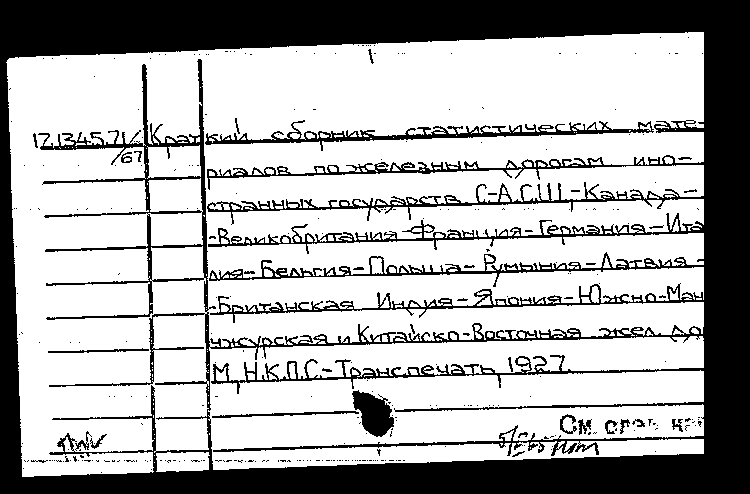 17.1345.71/ Краткий сборник статистических мате-
/67
риалов по железным дорогам ино-
странных государств. С-А.С.Ш.-Канада-
-Великобритания-Франция-Германия-Ита
лия-Бельгия-Польша-Румыния-Латвия-
-Британская Индия-Япония-Южно-Ман
чжурская и Китайско-Восточная жел. до
М, Н.К.П.С.-Транспечать, 1927.
См. след.